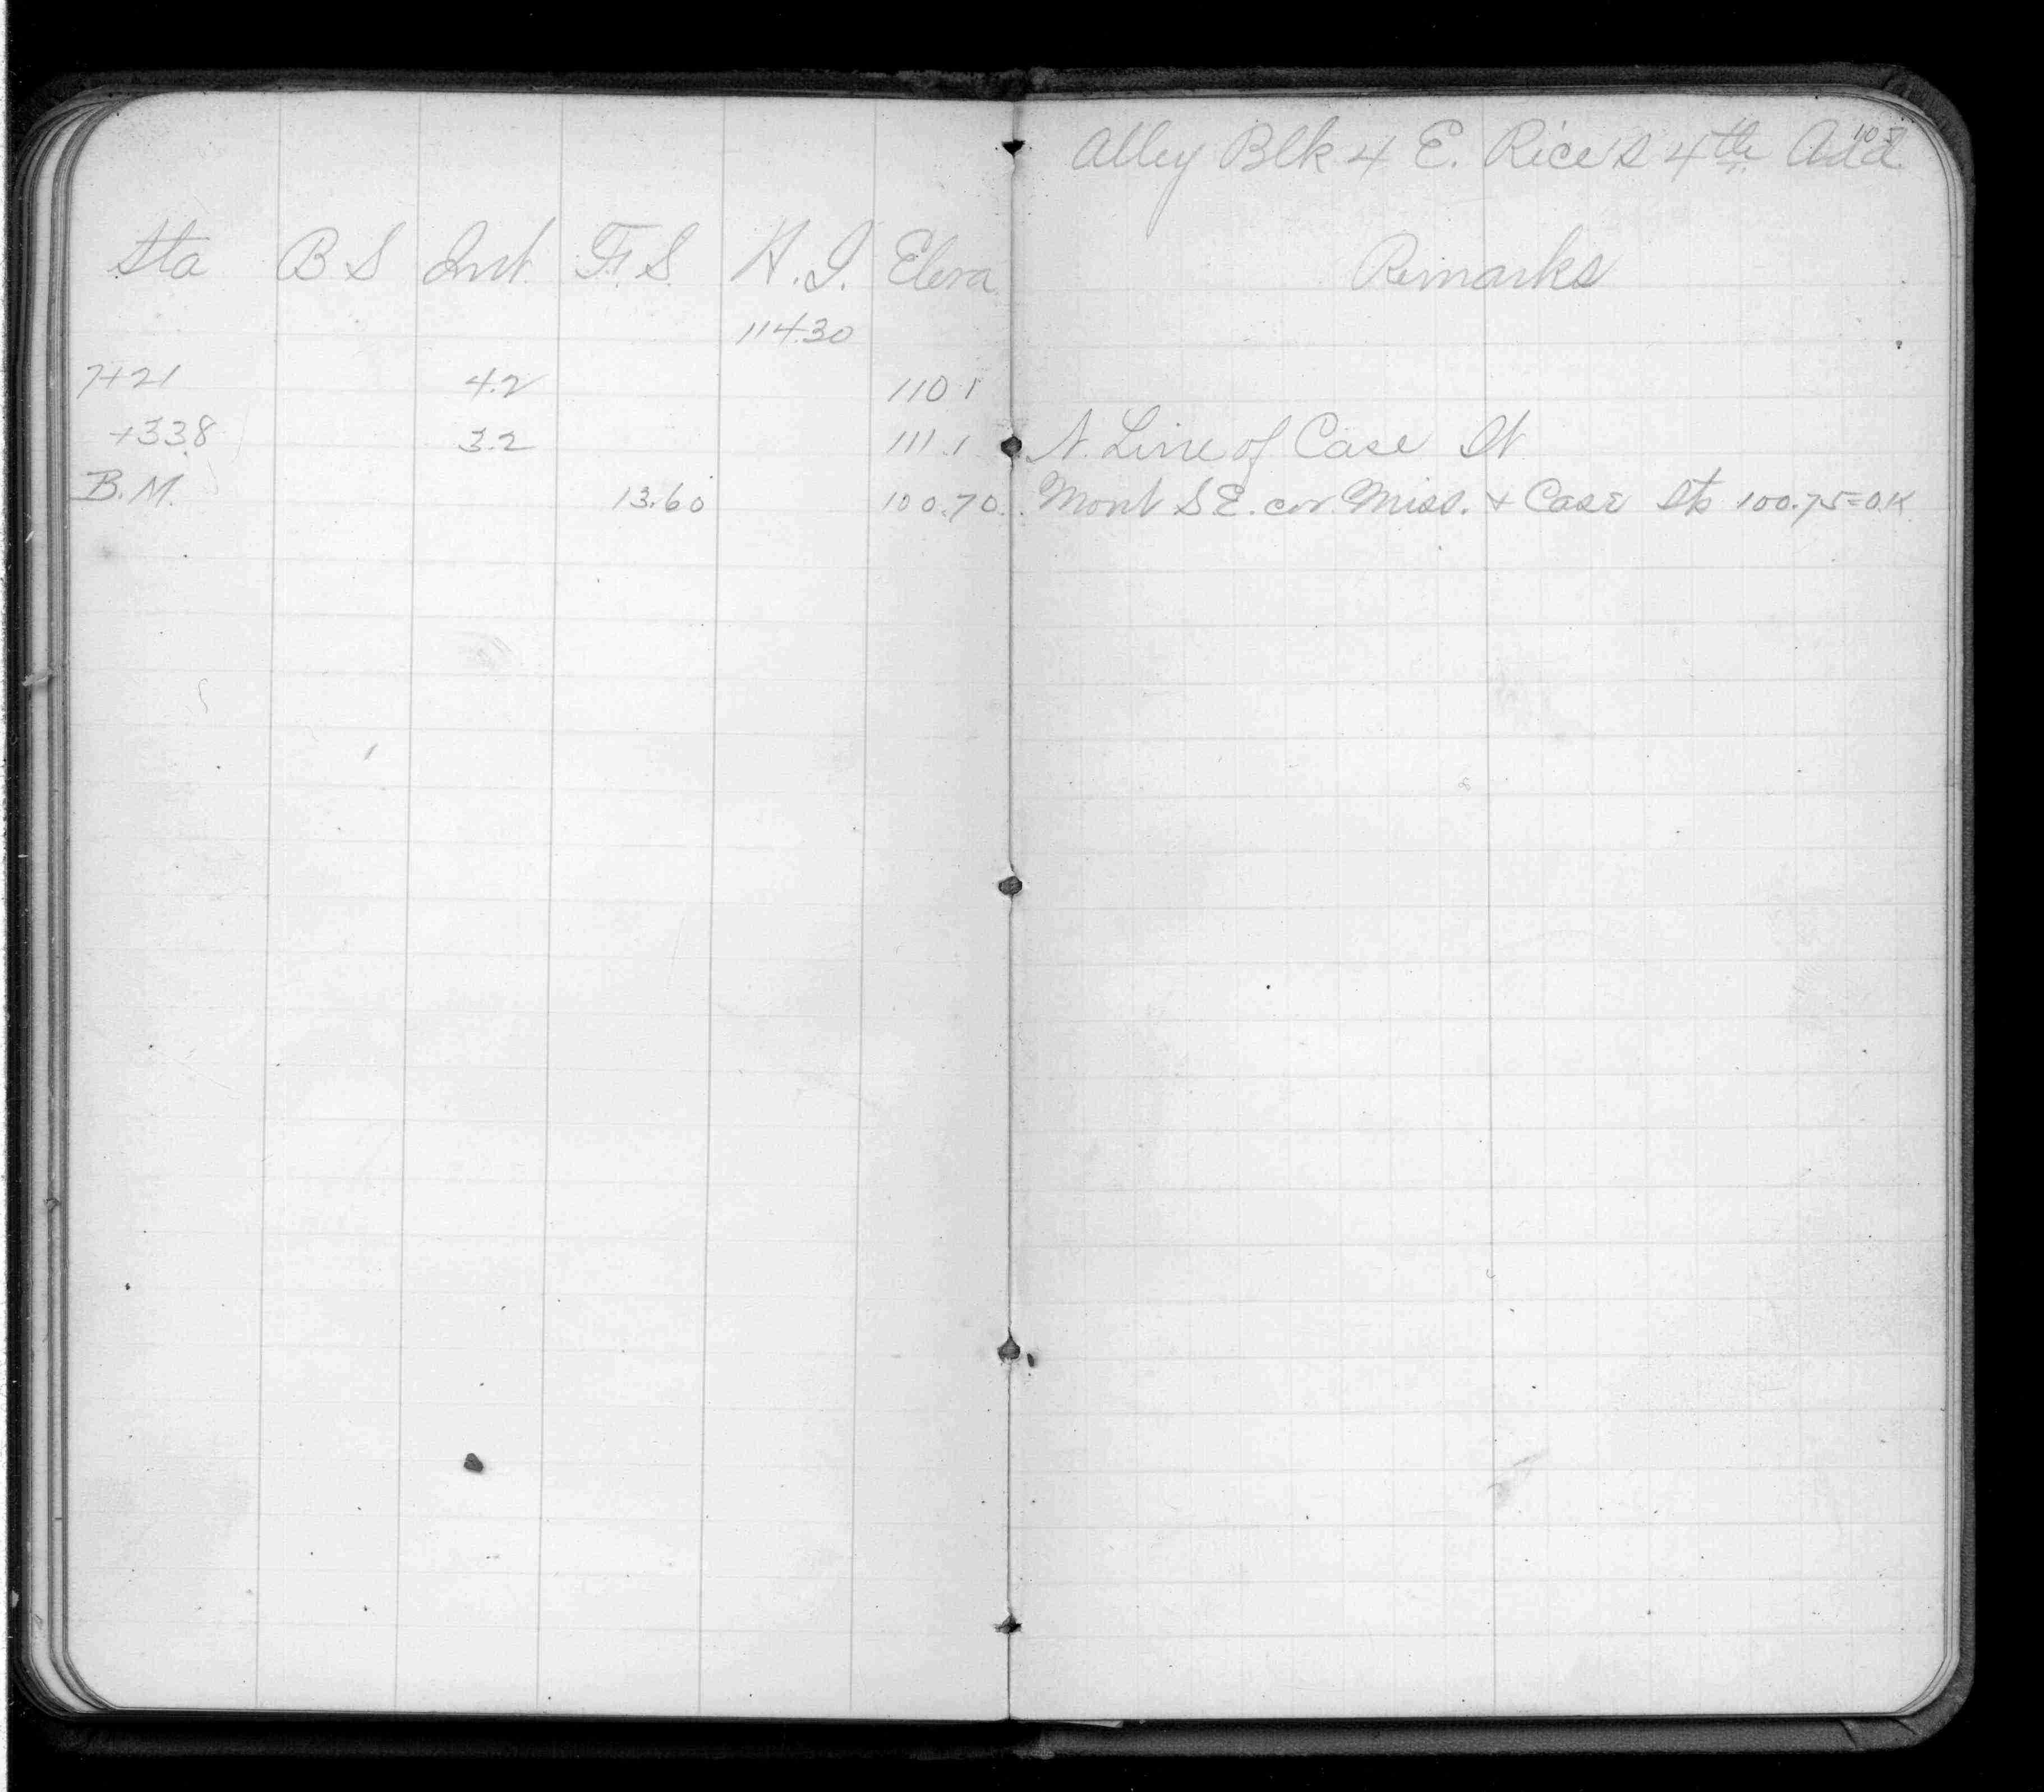 Alley Blk 4 E. Rice's 4th Add
105
Sta B S Int. F. S. H. I. Eleva Remarks
114.30
7+21 4.2 110.1
+33.8 3.2 111.1 N. Line of Case St
B.M. 13.60 100.70 Mont S E. cor. Miss. + Case Sts 100.75=O.K.